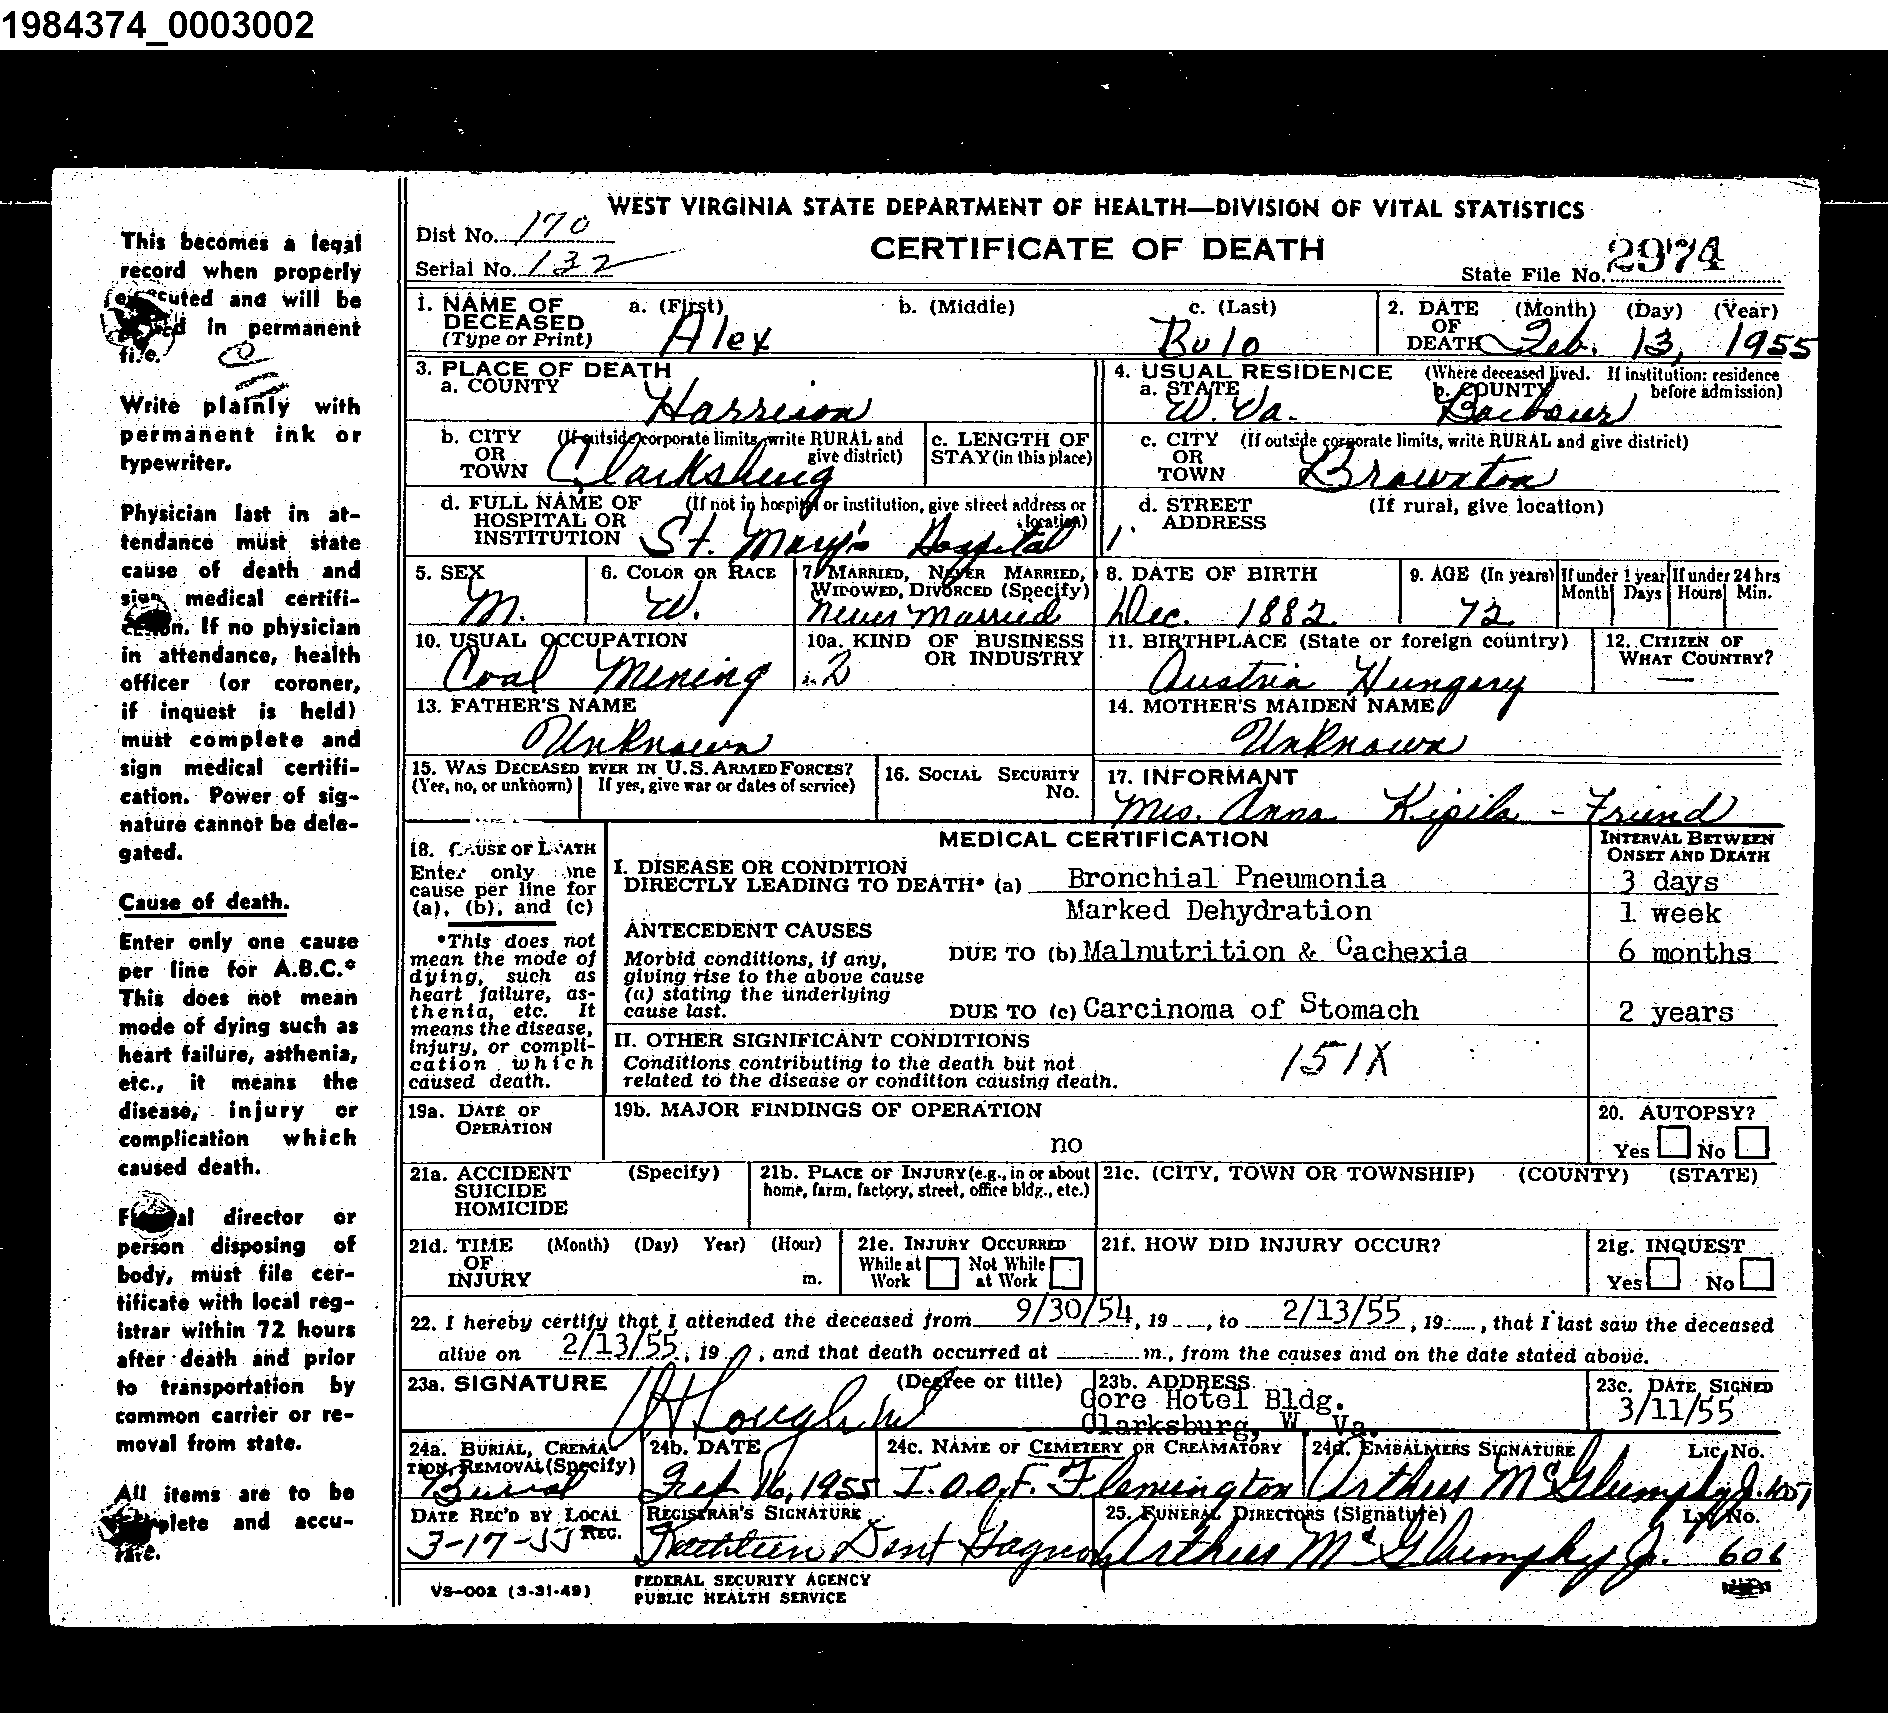 1984374_0003002
This becomes a legal
record when properly
executed and will be
in permanent
file.
Write plainly with
permanent ink or
typewriter.
Physician last in at-
tendance must state
cause of death and
sign medical certifi-
cation. If no physician
in attendance, health
officer (or coroner,
if inquest is held)
must complete and
sign medical certifi-
cation. Power of sig-
nature cannot be dele-
gated.
Cause of death.
Enter only one cause
per line for A.B.C.*
This does not mean
mode of dying such as
heart failure, asthenia,
etc., it means the
disease, injury or
complication which
caused death.
Funeral director or
person disposing of
body, must file cer-
tificate with local reg-
istrar within 72 hours
after death and prior
to transportation by
common carrier or re-
moval from state.
All items are to be
complete and accu-
rate.
WEST VIRGINIA STATE DEPARTMENT OF HEALTH—DIVISION OF VITAL STATISTICS
Dist No. 170
CERTIFICATE OF DEATH
Serial No. 132
State File No. 2974
1. NAME OF DECEASED (Type or Print) a. (First) Alex b. (Middle) c. (Last) Bulo
2. DATE OF DEATH (Month) (Day) (Year) Feb. 13, 1955
3. PLACE OF DEATH
a. COUNTY Harrison
4. USUAL RESIDENCE (Where deceased lived. If institution: residence before admission)
a. STATE W. Va. b. COUNTY Barbour
b. CITY OR TOWN (If outside corporate limits, write RURAL and give district) Clarksburg
c. LENGTH OF STAY (in this place)
c. CITY OR TOWN (If outside corporate limits, write RURAL and give district) Brownton
d. FULL NAME OF HOSPITAL OR INSTITUTION (If not in hospital or institution, give street address or location) St. Mary's Hospital
d. STREET ADDRESS (If rural, give location)
5. SEX M.
6. COLOR OR RACE W.
7. MARRIED, NEVER MARRIED, WIDOWED, DIVORCED (Specify) Never Married
8. DATE OF BIRTH Dec. 1882
9. AGE (In years) 72 If under 1 year Month Days If under 24 hrs Hours Min.
10. USUAL OCCUPATION Coal Mining
10a. KIND OF BUSINESS OR INDUSTRY 2
11. BIRTHPLACE (State or foreign country) Austria Hungary
12. CITIZEN OF WHAT COUNTRY? —
13. FATHER'S NAME Unknown
14. MOTHER'S MAIDEN NAME Unknown
15. WAS DECEASED EVER IN U.S. ARMED FORCES? (Yes, no, or unknown) If yes, give war or dates of service)
16. SOCIAL SECURITY No.
17. INFORMANT Mrs. Anna Kipila - Friend
MEDICAL CERTIFICATION
INTERVAL BETWEEN ONSET AND DEATH
18. CAUSE OF DEATH
Enter only one
cause per line for
(a), (b), and (c)
*This does not
mean the mode of
dying, such as
heart failure, as-
thenia, etc. It
means the disease,
injury, or compli-
cation which
caused death.
I. DISEASE OR CONDITION
DIRECTLY LEADING TO DEATH* (a) Bronchial Pneumonia 3 days
Marked Dehydration 1 week
ANTECEDENT CAUSES
DUE TO (b) Malnutrition & Cachexia 6 months
Morbid conditions, if any,
giving rise to the above cause
(a) stating the underlying
cause last.
DUE TO (c) Carcinoma of Stomach 2 years
II. OTHER SIGNIFICANT CONDITIONS
Conditions contributing to the death but not
related to the disease or condition causing death.
151X
19a. DATE OF OPERATION
19b. MAJOR FINDINGS OF OPERATION
no
20. AUTOPSY?
Yes No
21a. ACCIDENT SUICIDE HOMICIDE (Specify)
21b. PLACE OF INJURY (e.g., in or about home, farm, factory, street, office bldg., etc.)
21c. (CITY, TOWN OR TOWNSHIP) (COUNTY) (STATE)
21d. TIME OF INJURY (Month) (Day) Year) (Hour) m.
21e. INJURY OCCURRED While at Work Not While at Work
21f. HOW DID INJURY OCCUR?
21g. INQUEST Yes No
22. I hereby certify that I attended the deceased from 9/30/54, 19 , to 2/13/55, 19 , that I last saw the deceased
alive on 2/13/55, 19 , and that death occurred at m., from the causes and on the date stated above.
23a. SIGNATURE (Degree or title)
23b. ADDRESS Gore Hotel Bldg.
Clarksburg, W. Va.
23c. DATE SIGNED 3/11/55
24a. BURIAL, CREMATION, REMOVAL (Specify) Burial
24b. DATE Feb 16, 1955
24c. NAME OF CEMETERY OR CREAMATORY I.O.O.F. Flemington
24d. EMBALMERS SIGNATURE Lic. No. Arthur McGlumphy Jr. 4051
DATE REC'D BY LOCAL REG. 3-17-55
REGISTRAR'S SIGNATURE Kathleen Dent
25. FUNERAL DIRECTORS (Signature) Lic. No. Arthur McGlumphy Jr. 606
VS-002 (3-31-49)
FEDERAL SECURITY AGENCY
PUBLIC HEALTH SERVICE